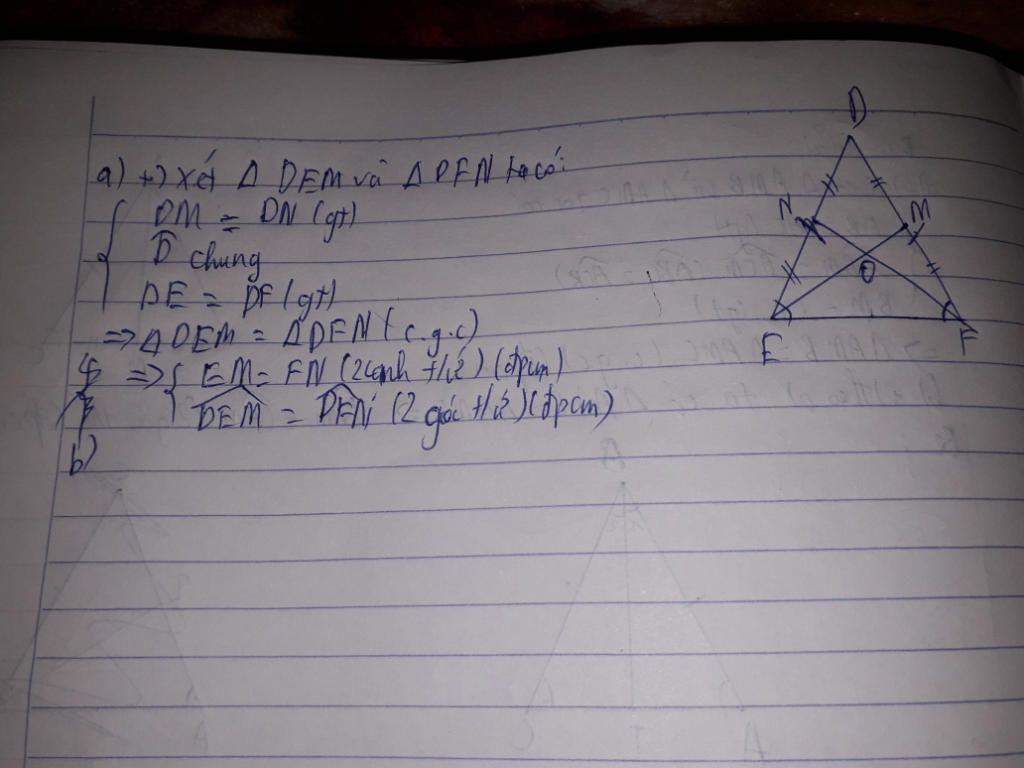 a) +) Xét Δ DEM và Δ DFN ta có:
DM = DN (gt)
D̂ chung
DE = DF (gt)
=> Δ DEM = Δ DFN (c.g.c)
=> { EM = FN (2 cạnh t/ứ) (đpcm)
DEM = DFN (2 góc t/ứ) (đpcm)
b)
D
N
M
O
E
F